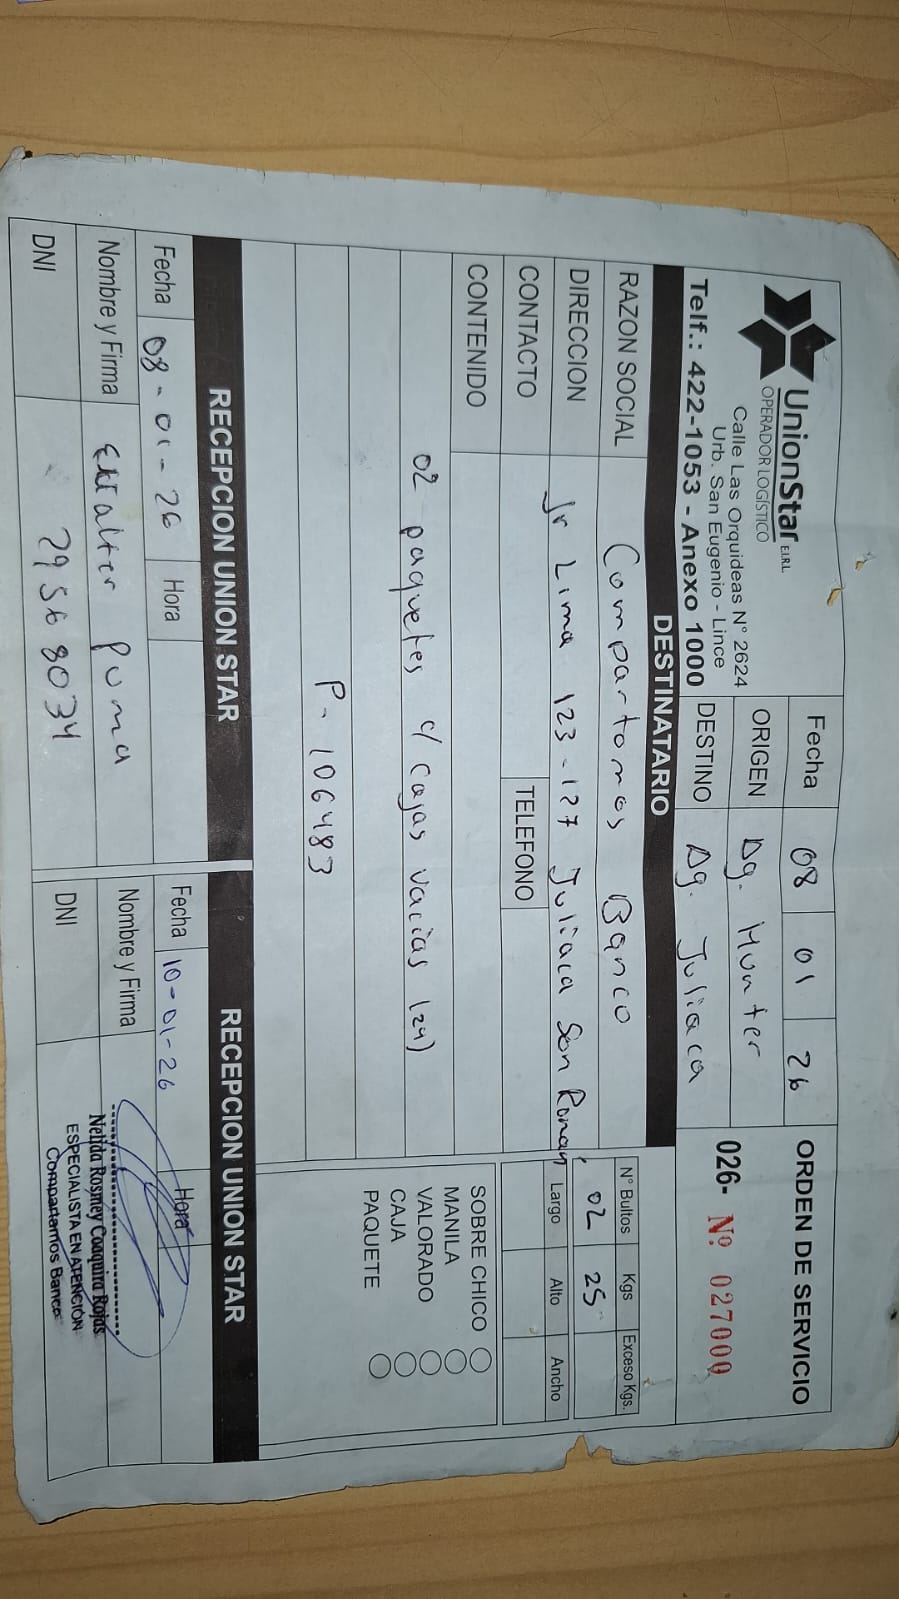 UnionStar E.I.R.L.
OPERADOR LOGÍSTICO
Calle Las Orquideas N° 2624
Urb. San Eugenio - Lince
Telf.: 422-1053 - Anexo 1000
Fecha 08 01 26
ORIGEN Ag. Hunter
DESTINO Ag. Juliaca
ORDEN DE SERVICIO
026- Nº 027000
DESTINATARIO
RAZON SOCIAL Compartamos Banco
DIRECCION Jr Lima 123-127 Juliaca San Roman
CONTACTO
TELEFONO
CONTENIDO
02 paquetes c/ Cajas vacias (24)
P. 106483
N° Bultos Kgs Exceso Kgs.
02 25
Largo Alto Ancho
SOBRE CHICO
MANILA
VALORADO
CAJA
PAQUETE
RECEPCION UNION STAR
Fecha 08-01-26 Hora
Nombre y Firma Puma
DNI 29568034
RECEPCION UNION STAR
Fecha 10-01-26 Hora
Nombre y Firma
DNI
Nelida Rosmey Coaquira Rojas
ESPECIALISTA EN ATENCIÓN
Compartamos Banco